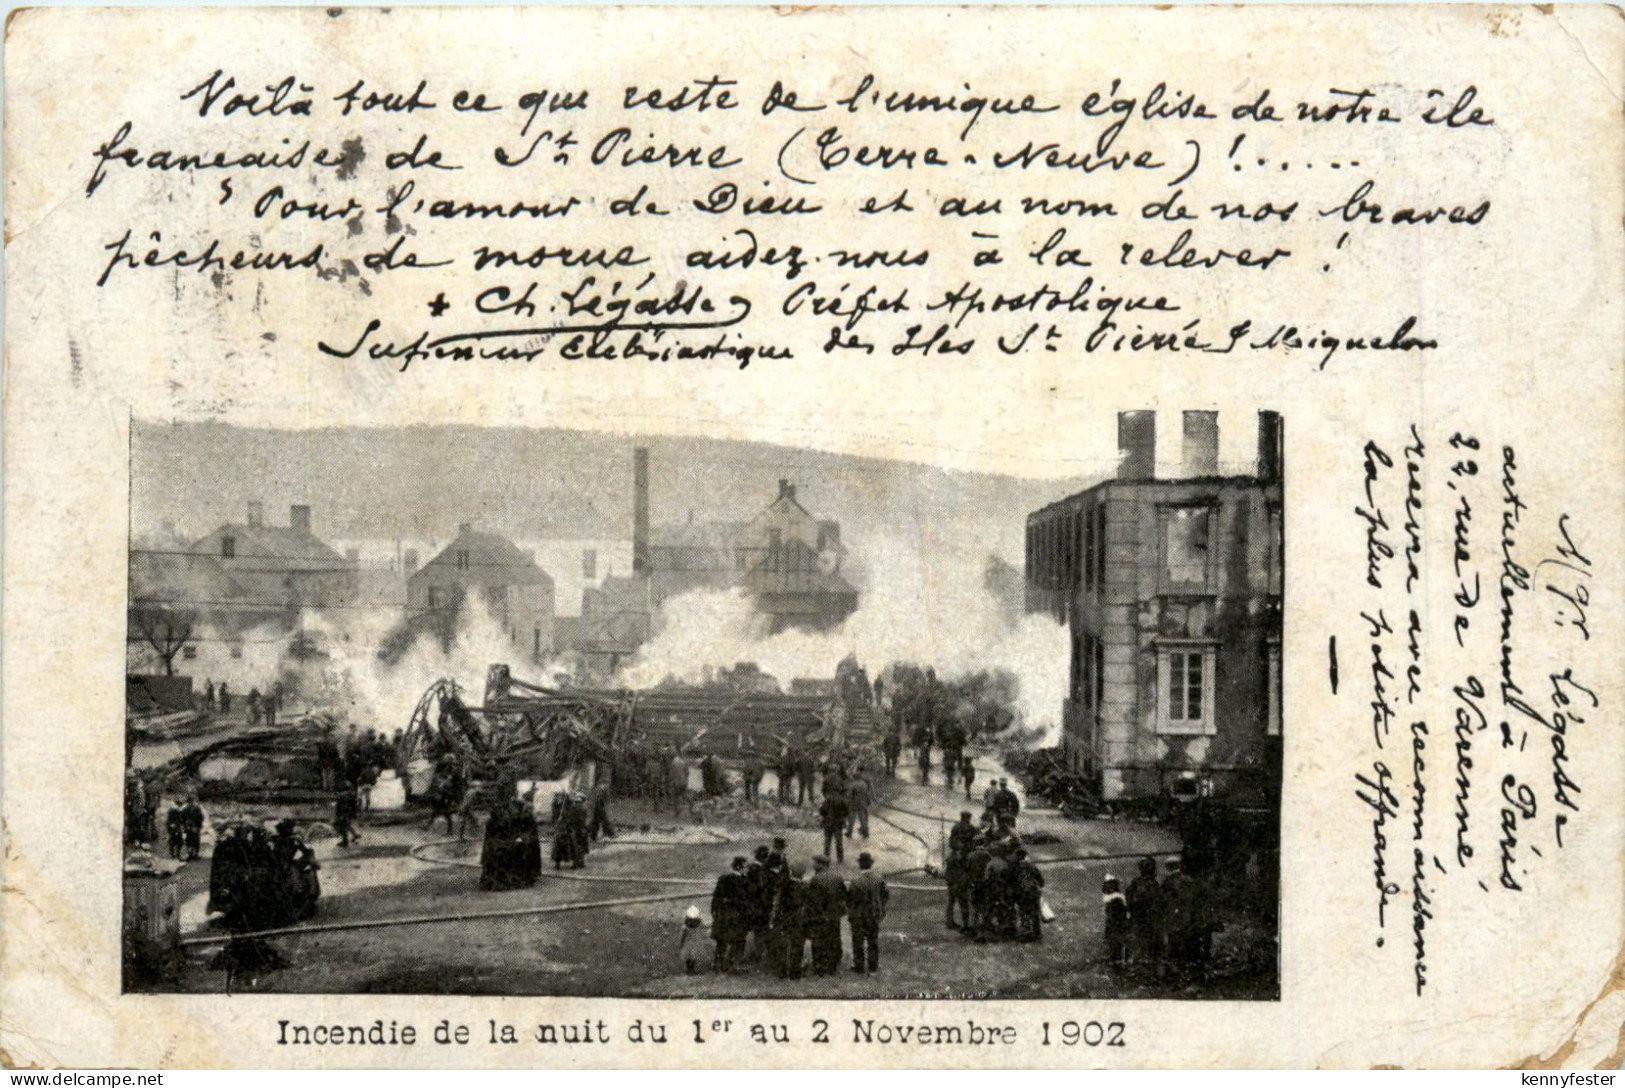 Voilà tout ce que reste de l'unique église de nôtre île
francaise de St Pierre (Terre-Neuve) !......
Pour l'amour de Dieu et au nom de nos braves
pêcheurs de morue, aidez-nous à la relever !
+ Ch. Légasse, Préfet Apostolique
Supérieur Ecclésiastique des Iles St Pierre & Miquelon
Mgr. Légasse
actuellement à Paris
22, rue de Varenne
recevra avec reconnaissance
la plus petite offrande.
Incendie de la nuit du 1er au 2 Novembre 1902
www.delcampe.net
kennyfester